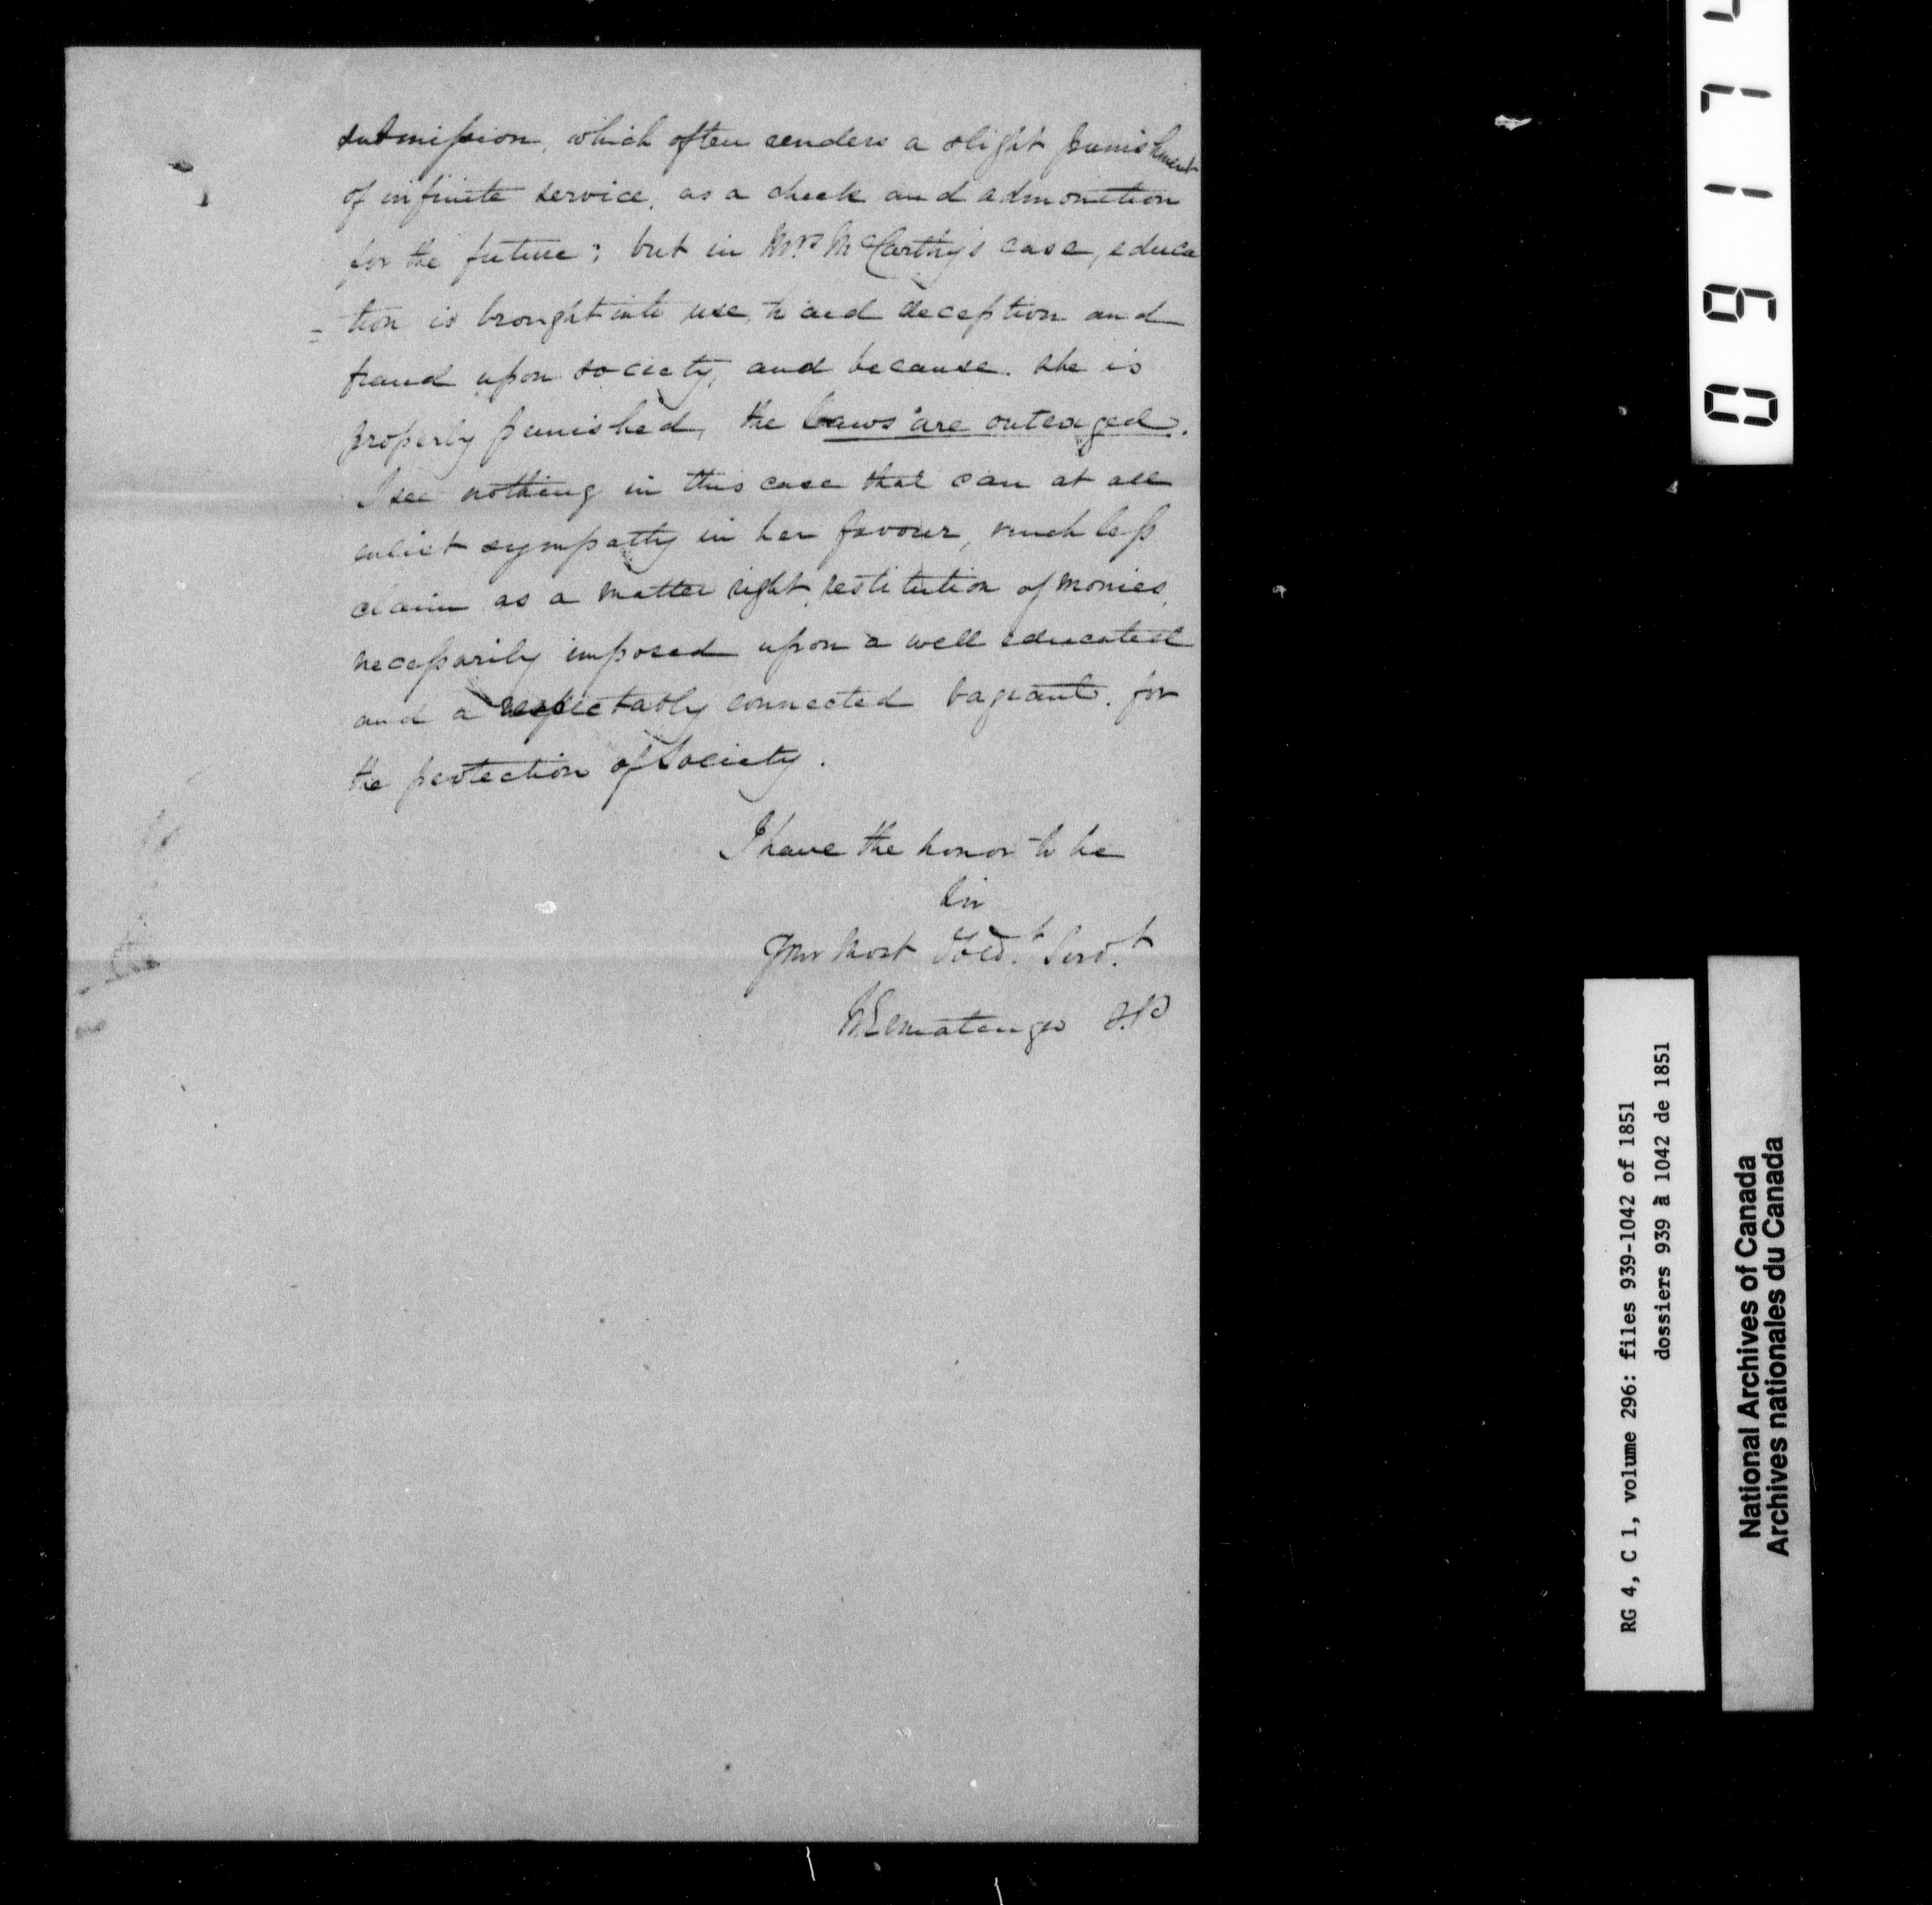 submission, which often renders a slight punishment
of infinite service, as a check and admonition
for the future; but in Mrs McCarthy's case, educa
= tion is brought into use, to aid deception and
fraud upon society, and because she is
properly punished, the Laws are outraged.
I see nothing in this case that can at all
enlist sympathy in her favour, much less
claim as a matter right, restitution of monies,
necessarily imposed upon a well educated
and a respectably connected vagrant, for
the protection of Society.
I have the honor to be
Sir
Your most Obedt. Servt.
J.P.
0 9 1 7
RG 4, C 1, volume 296: files 939-1042 of 1851
dossiers 939 à 1042 de 1851
National Archives of Canada
Archives nationales du Canada